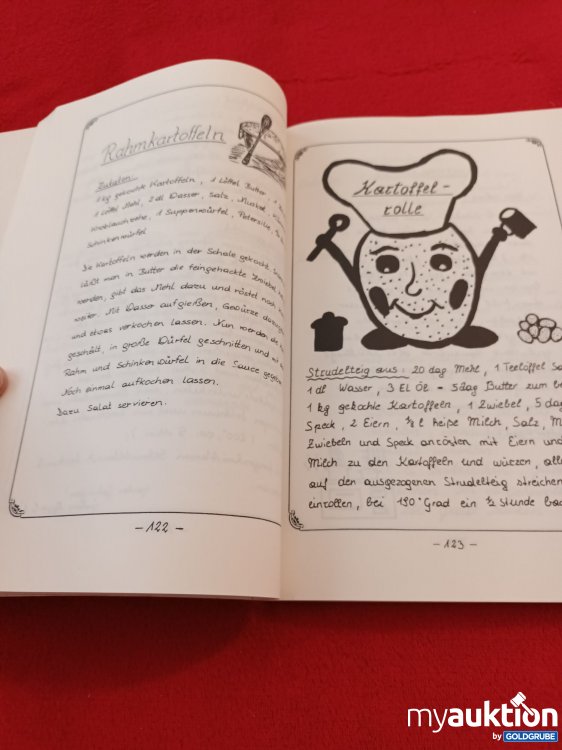 Rahmkartoffeln
Zutaten:
1 kg gekochte Kartoffeln, 1 Löffel Butter, 1
1 Löffel Mehl, 2 dl Wasser, Salz, Muskat,
Knoblauchzehe, 1 Suppenwürfel, Petersilie,
Schinkenwürfel
Die Kartoffeln werden in der Schale gekocht.
läßt man in Butter die feingehackte Zwiebel
werden, gibt das Mehl dazu und röstet noch
weiter. Mit Wasser aufgießen, Gewürze dazugeben
und etwas verkochen lassen. Nun werden die
geschält, in große Würfel geschnitten und mit
Rahm und Schinkenwürfel in die Sauce gegeben
Noch einmal aufkochen lassen.
Dazu Salat servieren.
- 122 -
Kartoffel-
rolle
Strudelteig aus: 20 dag Mehl, 1 Teelöffel Sa
1 dl Wasser, 3 EL Öl - 5 dag Butter zum be
1 kg gekochte Kartoffeln, 1 Zwiebel, 5 dag
Speck, 2 Eiern, 1/8 l heiße Milch, Salz, M
Zwiebeln und Speck anrösten mit Eiern und
Milch zu den Kartoffeln und würzen, alle
auf den ausgezogenen Strudelteig streichen
einrollen, bei 190° Grad ein 1/2 Stunde bac
- 123 -
myauktion
by GOLDGRUBE